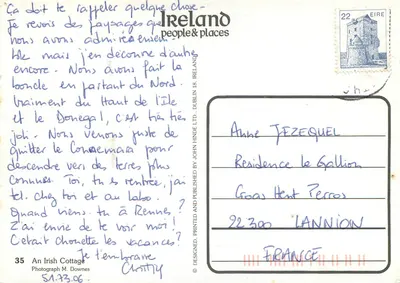 Ça doit te rappeler quelque chose -
Je revois des paysages que
nous avons admirés ensemble
mais j'en découvre d'autres
encore. Nous avons fait la
boucle en partant du Nord.
Vraiment du Haut de l'île
et le Donegal, c'est très très
joli. Nous venons juste de
quitter le Connemara pour
descendre vers des terres plus
connues. Toi, tu es rentrée, j'ai
tel. chez toi et au labo.
Quand viens tu à Rennes ?
J'ai envie de te voir moi !
C'était chouette les vacances ?
Je t'embrasse
35 An Irish Cottage
Photograph M. Downes
51.73.06.
© DESIGNED, PRINTED AND PUBLISHED BY JOHN HINDE LTD. DUBLIN 18, IRELAND
Ireland
people & places
22 EIRE
Anne JEZEQUEL
Residence le Gallion
Croas Hent Perros
22300 LANNION
FRANCE